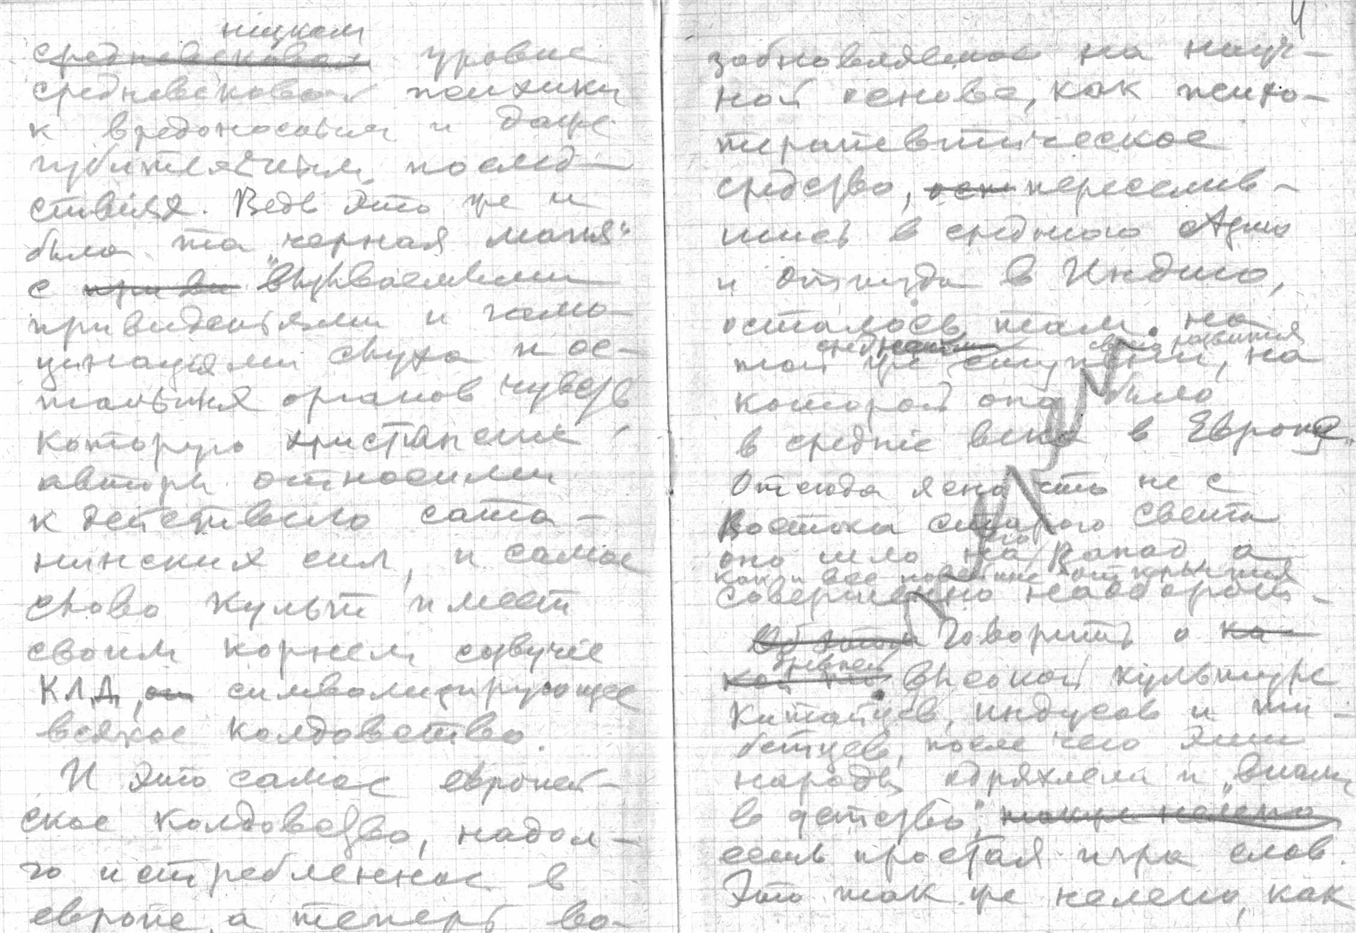 низком
средневековая уровне
средневековой психики
к вредоносным и даже
губительным послед-
ствиям. Ведь это же и
была та „черная магия"
с вызываемыми
привиденьями и галлю-
цинациями слуха и ос-
тальных органов чувств
которую христианские
авторы относили
к действию сата-
нинских сил, и самое
слово культ имеет
своим корнем созвучие
КЛД, символизирующее
всякое колдовство.
И это самое европей-
ское колдовство, надол-
го истребленное в
европе, а теперь во-
4
зобновляемое на науч-
ной основе, как психо-
терапевтическое
средство, переселив-
шись в среднюю Азию
и оттуда в Индию,
осталось там на
своего развития
той же ступени, на
которой оно было
в средние века в Европе.
Отсюда ясно что не с
Востока старого света
оно шло на Запад, а
как и все
совершенно наоборот.
Говорить о ка-
древней
кой то высокой культуре
Китайцев, индусов и ти-
бетцев, после чего эти
народы одряхлели и „впали
в детство",
есть простая игра слов.
Это так же нелепо, как